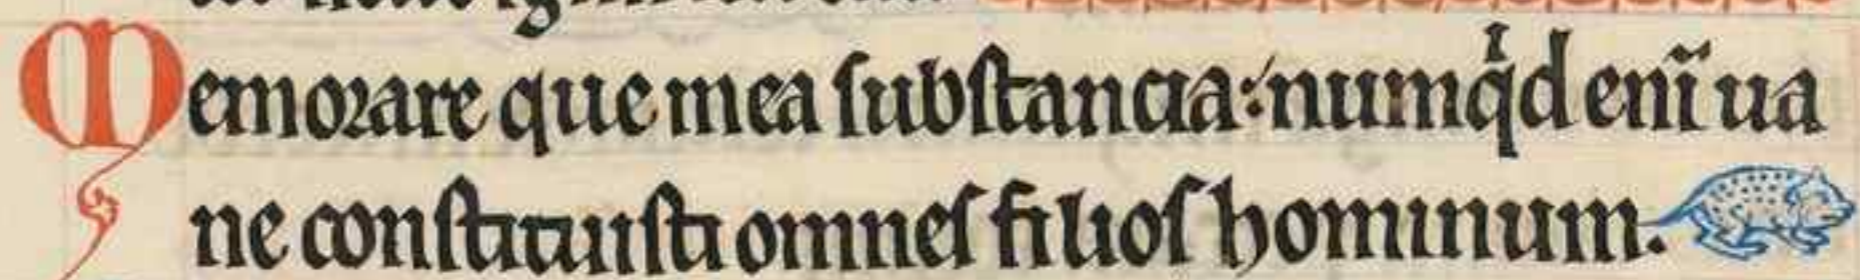 Memorare que mea ſubſtancia: numqͥd enī ua
ne conſtituiſti omneſ filioſ hominum.